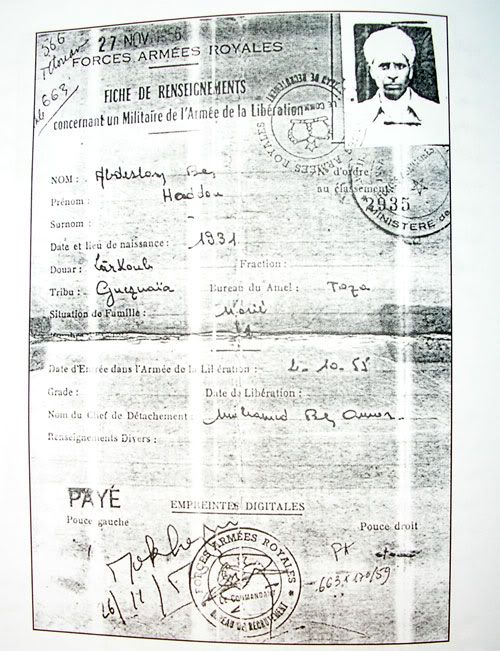 566
27 NOV. 1956
FORCES ARMÉES ROYALES
663
FICHE DE RENSEIGNEMENTS
concernant un Militaire de l'Armée de la Libération
NOM : Abdeslam Ben
Prénom : Haddou
d'ordre
au classement
2935
Surnom :
Date et lieu de naissance : 1931
Douar : Fraction :
Tribu : Gueznaïa Bureau du Amel : Taza
Situation de Famille : Marié
Date d'Entrée dans l'Armée de la Libération : 2-10-55
Grade : Date de Libération :
Nom du Chef de Détachement : Mohamed Ben Amar
Renseignements Divers :
PAYÉ
EMPREINTES DIGITALES
Pouce gauche Pouce droit
FORCES ARMÉES ROYALES
LE COMMANDANT
BUREAU DE RECRUTEMENT
MINISTERE de
663 170/59